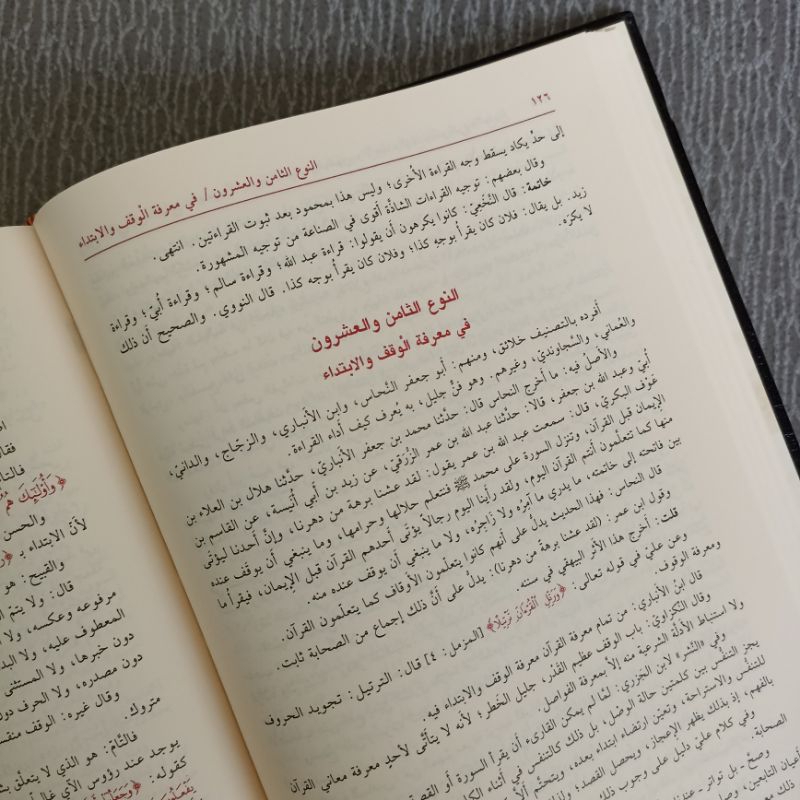 ١٢٦
النوع الثامن والعشرون / في معرفة الْوقف والابتداء
إلى حدٍّ يكاد يسقط وجه القراءة الأخرى؛ وليس هذا بمحمود بعد ثبوت القراءتين. انتهى.
وقال بعضهم: توجيه القراءات الشاذّة أقوى في الصناعة من توجيه المشهورة.
خاتمة: قال النَّخَعِيّ: كانوا يكرهون أن يقولوا: قراءة عبد الله؛ وقراءة سالم؛ وقراءة أُبيّ؛ وقراءة
زيد. بل يقال: فلان كان يقرأ بوجه كذا؛ وفلان كان يقرأ بوجه كذا. قال النووي. والصحيح أن ذلك
لا يكرَه.
النوع الثامن والعشرون
في معرفة الْوقف والابتداء
أفرده بالتصنيف خلائق، ومنهم: أبو جعفر النَّحاس، وابن الأنباري، والزجّاج، والدانيّ،
والعُماني، والسَّجاونديّ، وغيرهم. وهو فنٌّ جليل، به يُعرف كيف أداء القراءة.
والأصلُ فيه: ما أخرج النحاس قال: حدّثنا محمد بن جعفر الأنباريّ، حدَّثنا هلال بن العلاء بن
أُبيّ وعبد الله بن جعفر، قالا: حدّثنا عبد الله بن عمر الزُّرَقيّ، عن زيد بن أبي أُنَيسة، عن القاسم بن
عَوْف البكريّ، قال: سمعت عبد الله بن عمر يقول: لقد عشنا برهة من دهرنا، وإنَّ أحدنا ليؤتَى
الإيمان قبل القرآن، وتنزل السورة على محمد ﷺ فنتعلم حلالها وحرامها، وما ينبغي أن يوقَف عنده
منها كما تتعلَّمون أنتم القرآن اليوم، ولقد رأينا اليوم رجالاً يؤتَى أحدهم القرآن قبل الإيمان، فيقرأ ما
بين فاتحته إلى خاتمته، ما يدري ما آمِرُه ولا زَاجِرُه، ولا ما ينبغي أن يوقف عنده منه.
قال النحاس: فهذا الحديث يدلُّ على أنهم كانوا يتعلّمون الأوقاف كما يتعلّمون القرآن.
وقول ابن عمر: (لقد عشنا برهةً من دهرنا): يدلُّ على أنَّ ذلك إجماع من الصحابة ثابت.
قلت: أخرج هذا الأثَر البيهقي في سننه.
وعن عليّ في قوله تعالى: ﴿وَرَتِّلِ الْقُرْءَانَ تَرْتِيلًا﴾ [المزمل: ٤] قال: الترتيل: تجويد الحروف
ومعرفة الوقوف.
قال ابنُ الأنباري: من تمام معرفة القرآن معرفة الوقف والابتداء فيه.
وقال النِّكزاويّ: باب الوقف عظيم القَدْر، جليل الخَطر؛ لأنه لا يتأتَّى لأحدٍ معرفة معاني القرآن
ولا استنباط الأدلَّة الشرعية منه إلاَّ بمعرفة الفواصل.
وفي «النَّشْر» لابن الجَزري: لمَّا لم يمكن القارىء أن يقرأ السورة أو القصة
يجز التنفُّس بين كلمتين حالة الوصْل، بل ذلك كالتنفس في أثناء
للتنفُّس والاستراحة، وتعيّن ارتضاء ابتداء بعده، ويتحتَّم
بالفهم، إذ بذلك يظهر الإعجاز، ويحصل القصد؛
وفي كلام عليّ دليل على وجوب ذلك
الصحابة.
وصحّ ـ بل تواتر ـ عندنا
أعيان التابعين،
﴿وَأُوْلَٰئِكَ هُمُ
والحسن
لأنّ الابتداء بـ
والقبيح: هو
قال: ولا يتم
مرفوعه وعكسه، ولا
المعطوف عليه، ولا البد
دون خبرها، ولا المستثنى
دون مصدره، ولا الحرف دون
وقال غيره: الوقف منقس
متروك.
فالتّامّ: هو الذي لا يتعلّق بش
يوجد عند رؤوس الآي غالباً
كقوله: